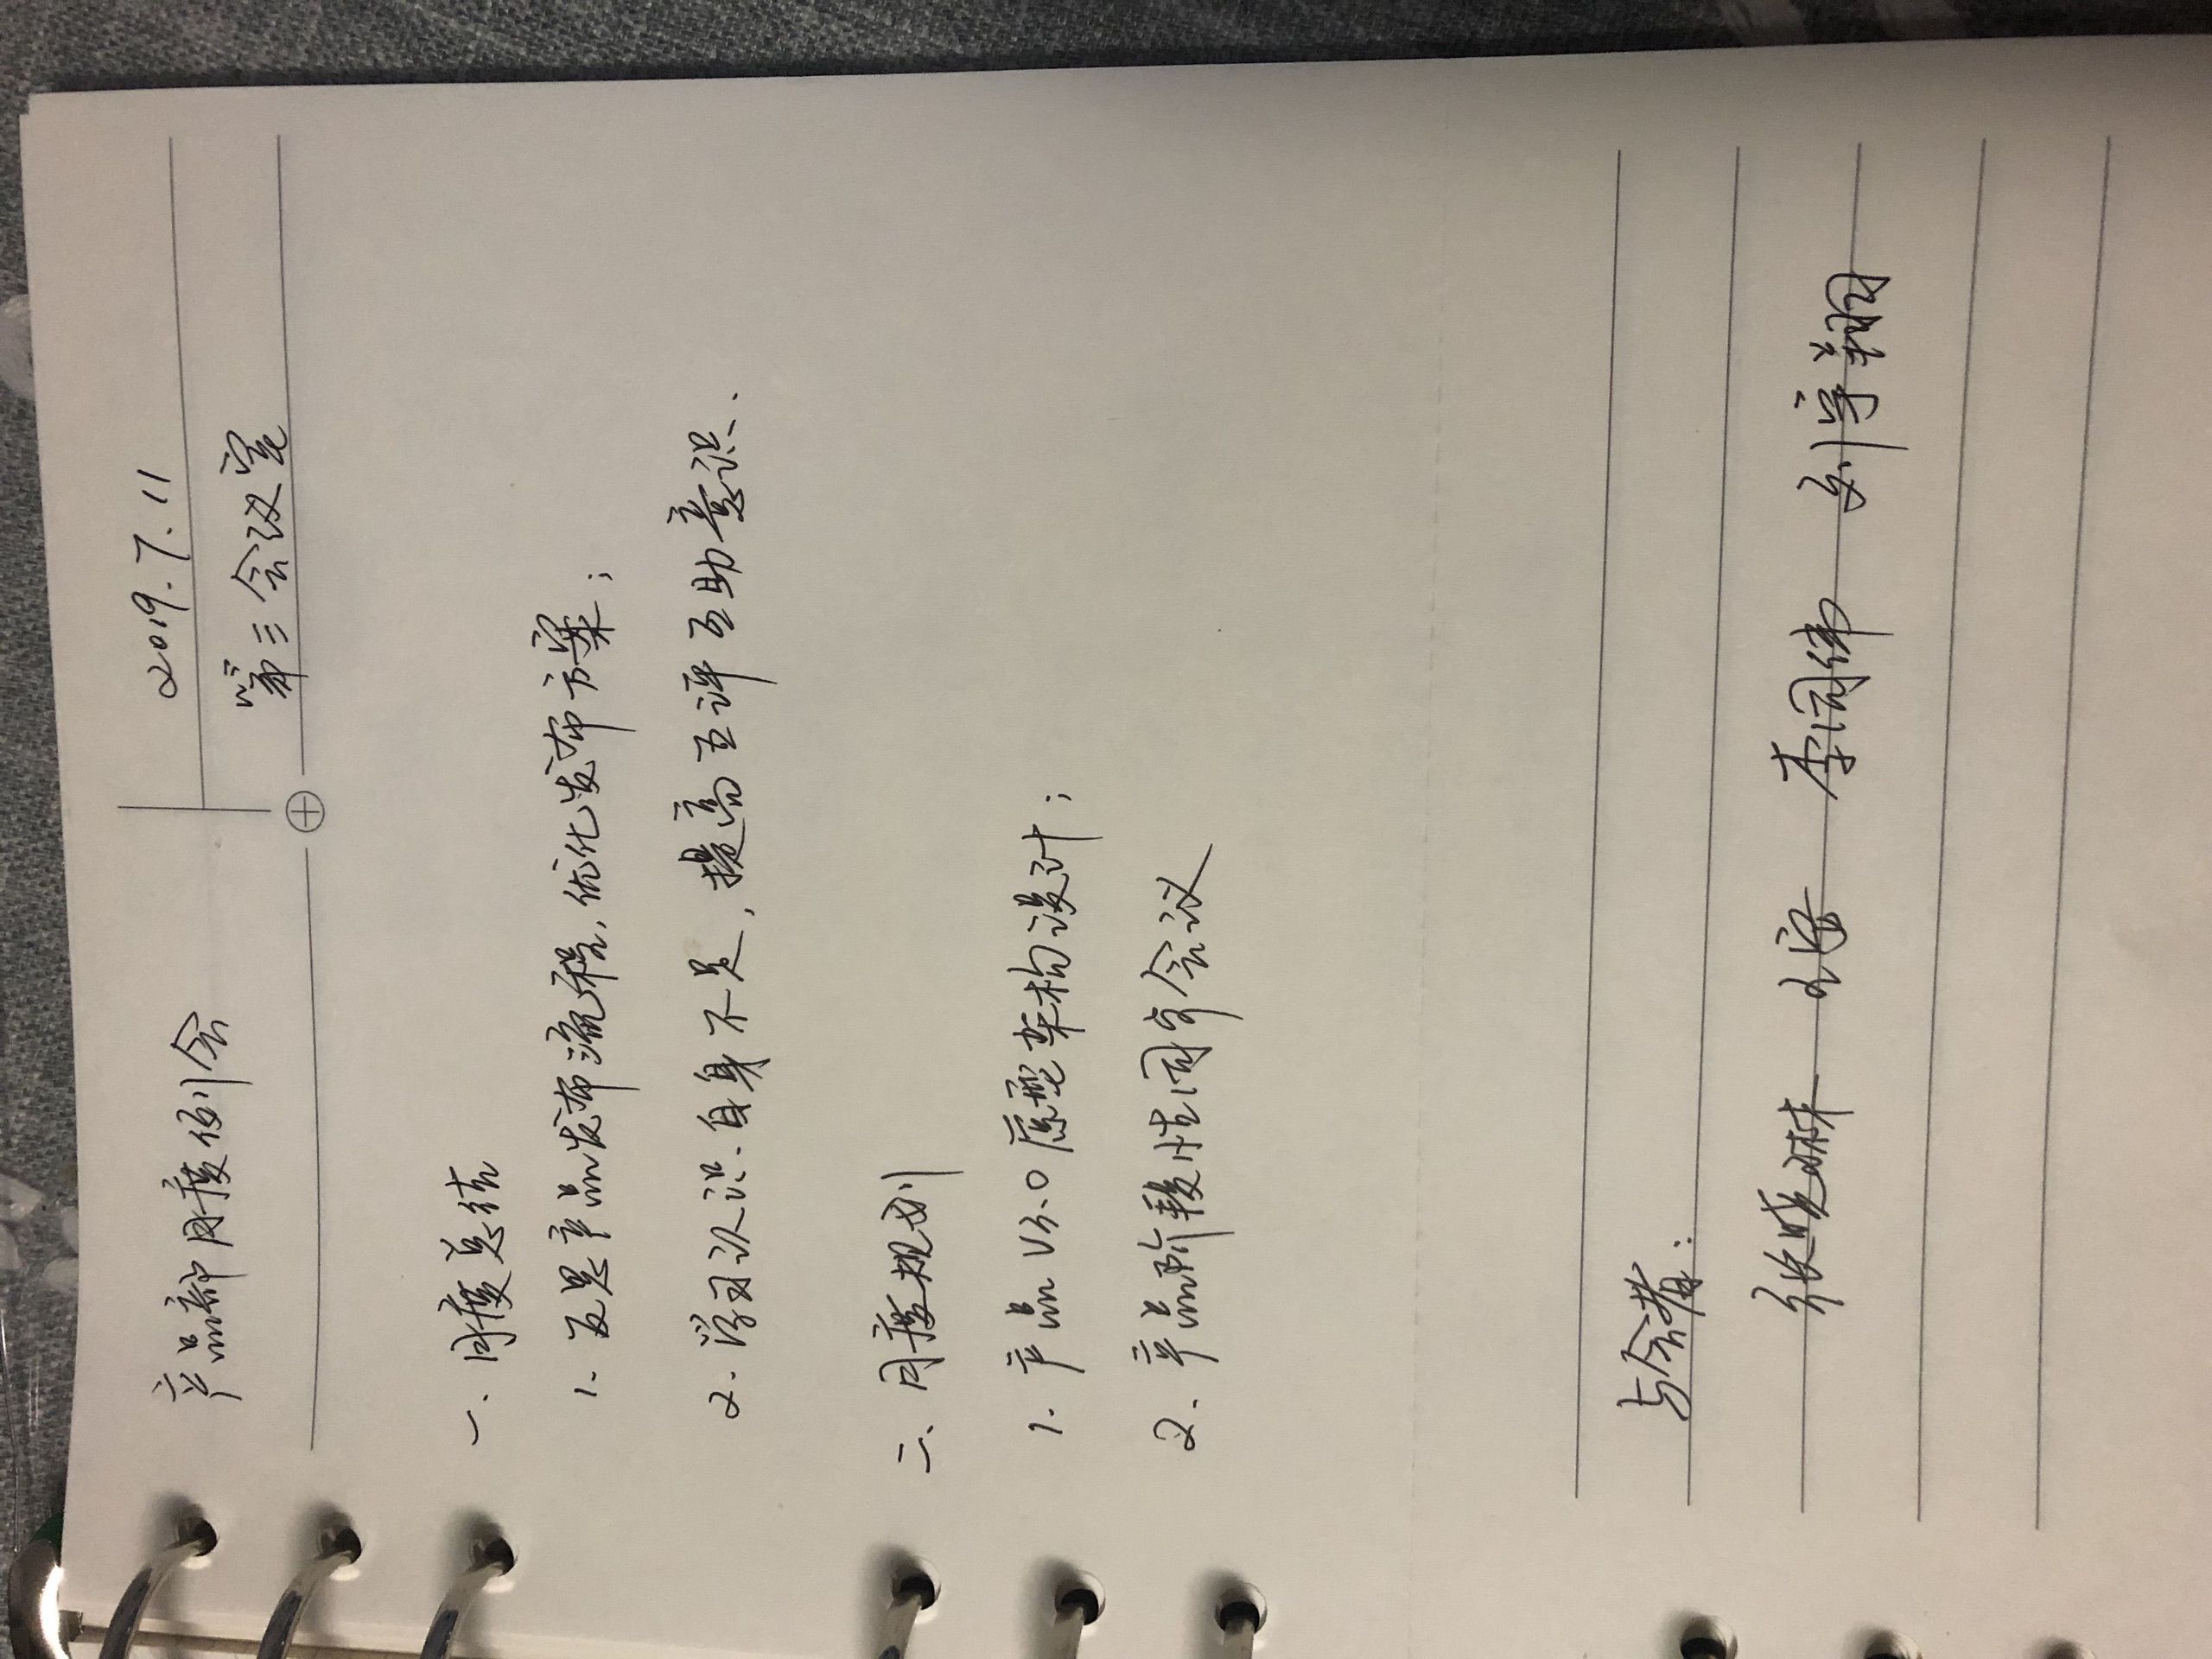 产品部月度例会
2019.7.11
第三会议室
一、月度总结
1. 反思产品发布流程,优化发布方案;
2. 学习认识自身不足,提高互评互助意识.
二、月度规划
1. 产品V3.0原型架构设计;
2. 产品阶段性同步会议
与会者:
张晓琳 王宝 李同伟 刘宇翔